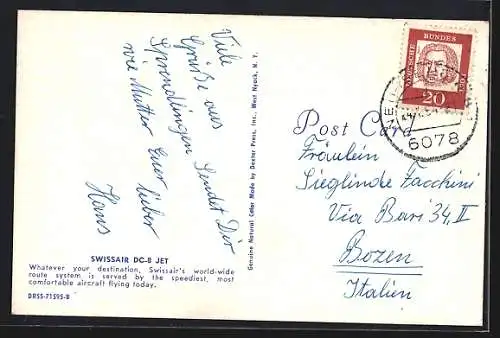 Viele
Grüße aus
Sprendlingen sendet Dir
wie Mutter Euer lieber
Hans
SWISSAIR DC-8 JET
Whatever your destination, Swissair's world-wide
route system is served by the speediest, most
comfortable aircraft flying today.
DRSS-71595-B
Genuine Natural Color Made by Dexter Press, Inc., West Nyack, N. Y.
Post Card
Fräulein
Sieglinde Facchini
Via Bari 34, II
Bozen
Italien
DEUTSCHE
BUNDES
POST
20
6078